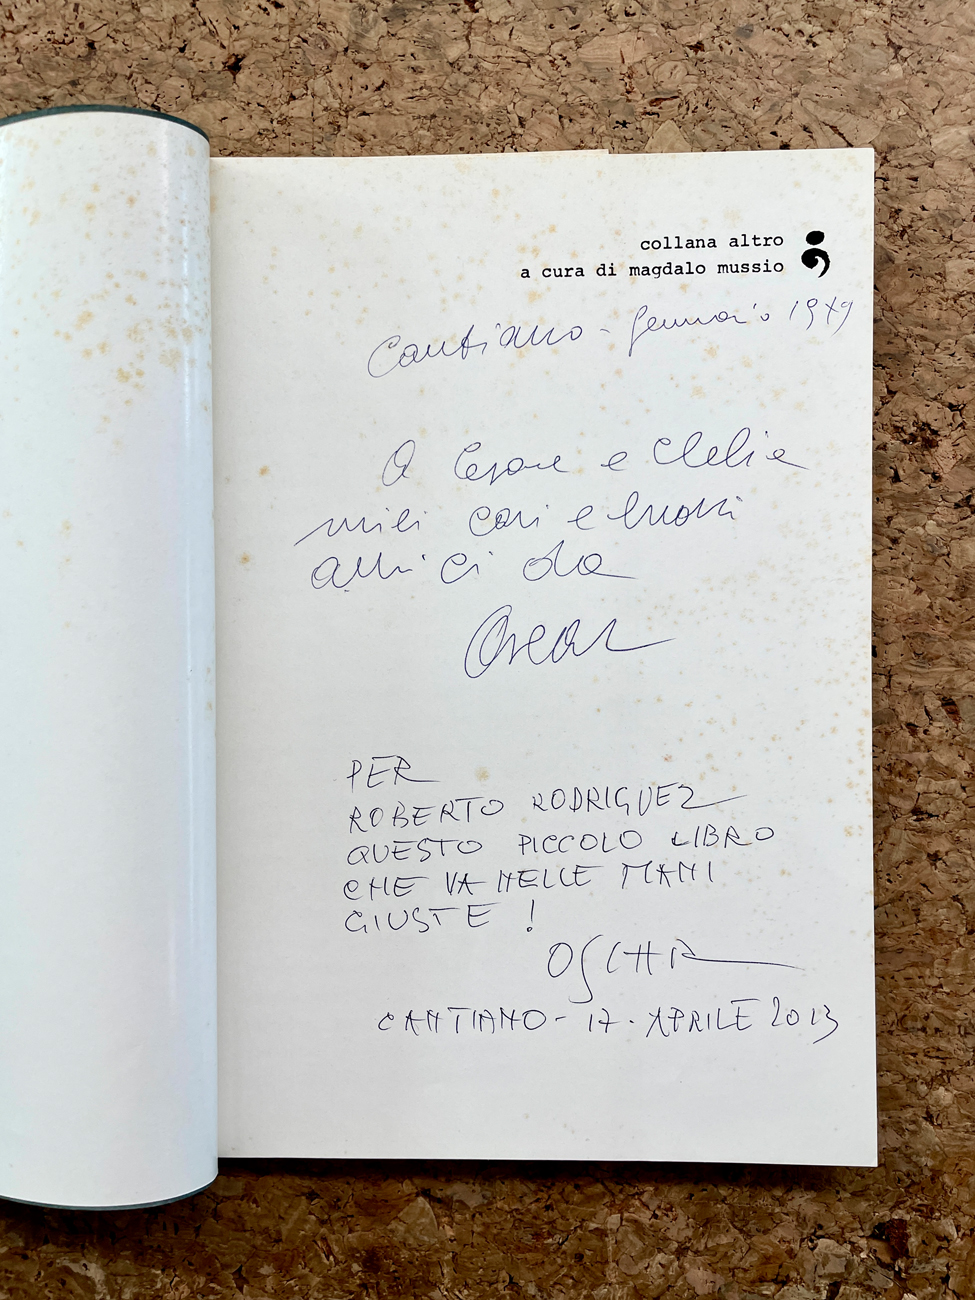 collana altro
a cura di magdalo mussio
Cantiano - gennaio 1979
A Cesare e Clelia
miei cari e buoni
amici da
Oscar
PER
ROBERTO RODRIGUEZ
QUESTO PICCOLO LIBRO
CHE VA NELLE MANI
GIUSTE !
OSCAR
CANTIANO - 17 · APRILE 2013